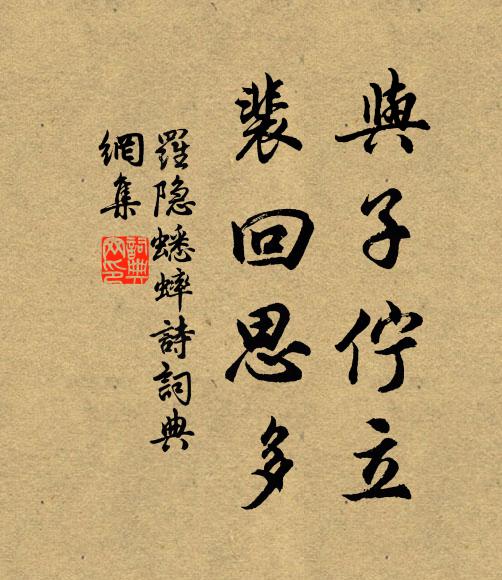 與子佇立
裴回思多
羅隐蟋蟀詩詞典
網集
詞典
网印